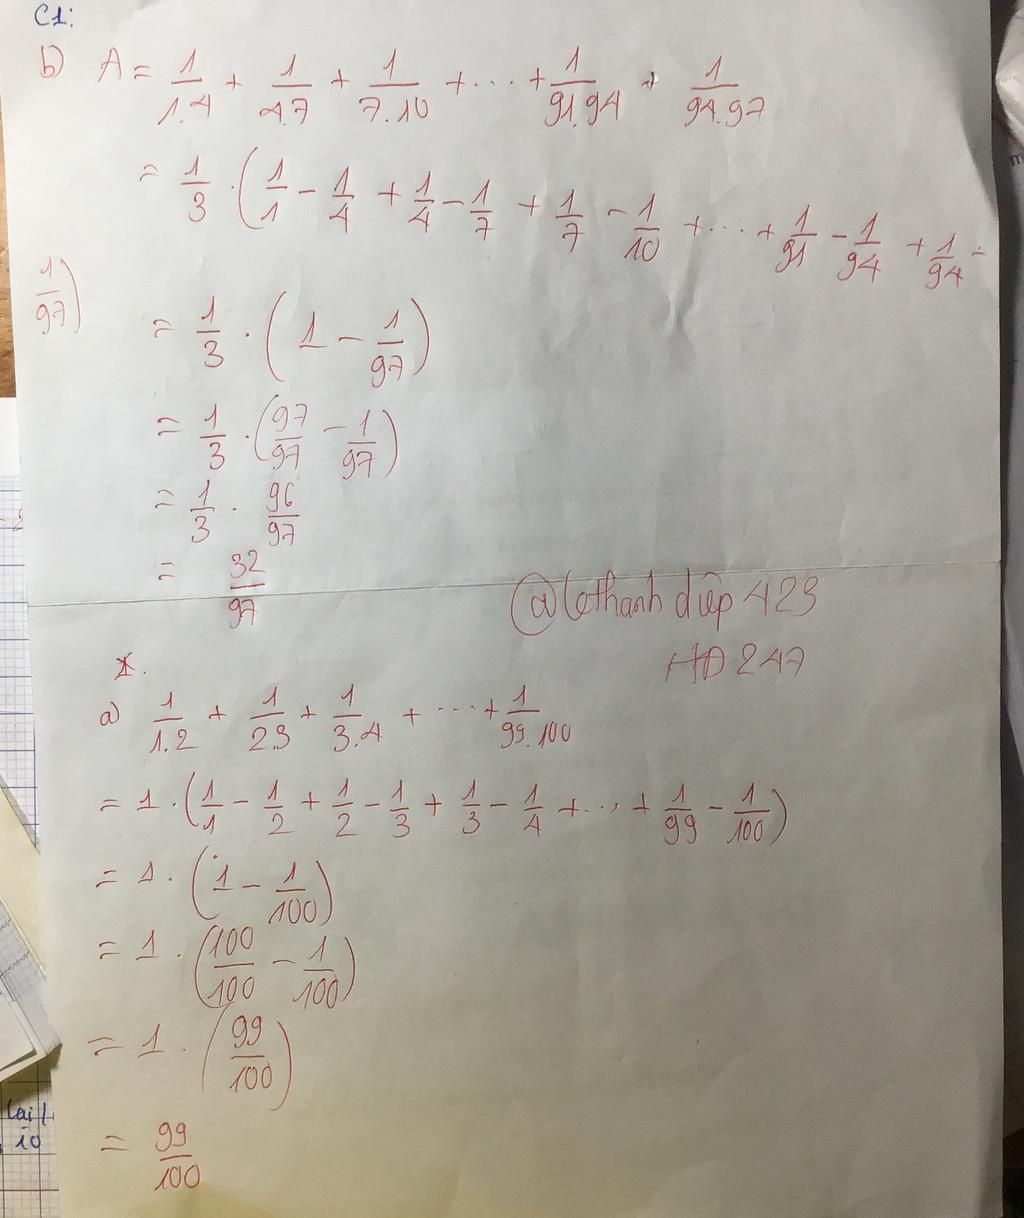 C1:
b) A = 1/1.4 + 1/4.7 + 1/7.10 + ... + 1/91.94 + 1/94.97
= 1/3 . (1/1 - 1/4 + 1/4 - 1/7 + 1/7 - 1/10 + ... + 1/91 - 1/94 + 1/94 -
1/97)
= 1/3 . (1 - 1/97)
= 1/3 . (97/97 - 1/97)
= 1/3 . 96/97
= 32/97
@lethanh diệp 423
HD 247
a) 1/1.2 + 1/2.3 + 1/3.4 + ... + 1/99.100
= 1 . (1/1 - 1/2 + 1/2 - 1/3 + 1/3 - 1/4 + ... + 1/99 - 1/100)
= 1 . (1 - 1/100)
= 1 . (100/100 - 1/100)
= 1 . (99/100)
= 99/100
lại
10